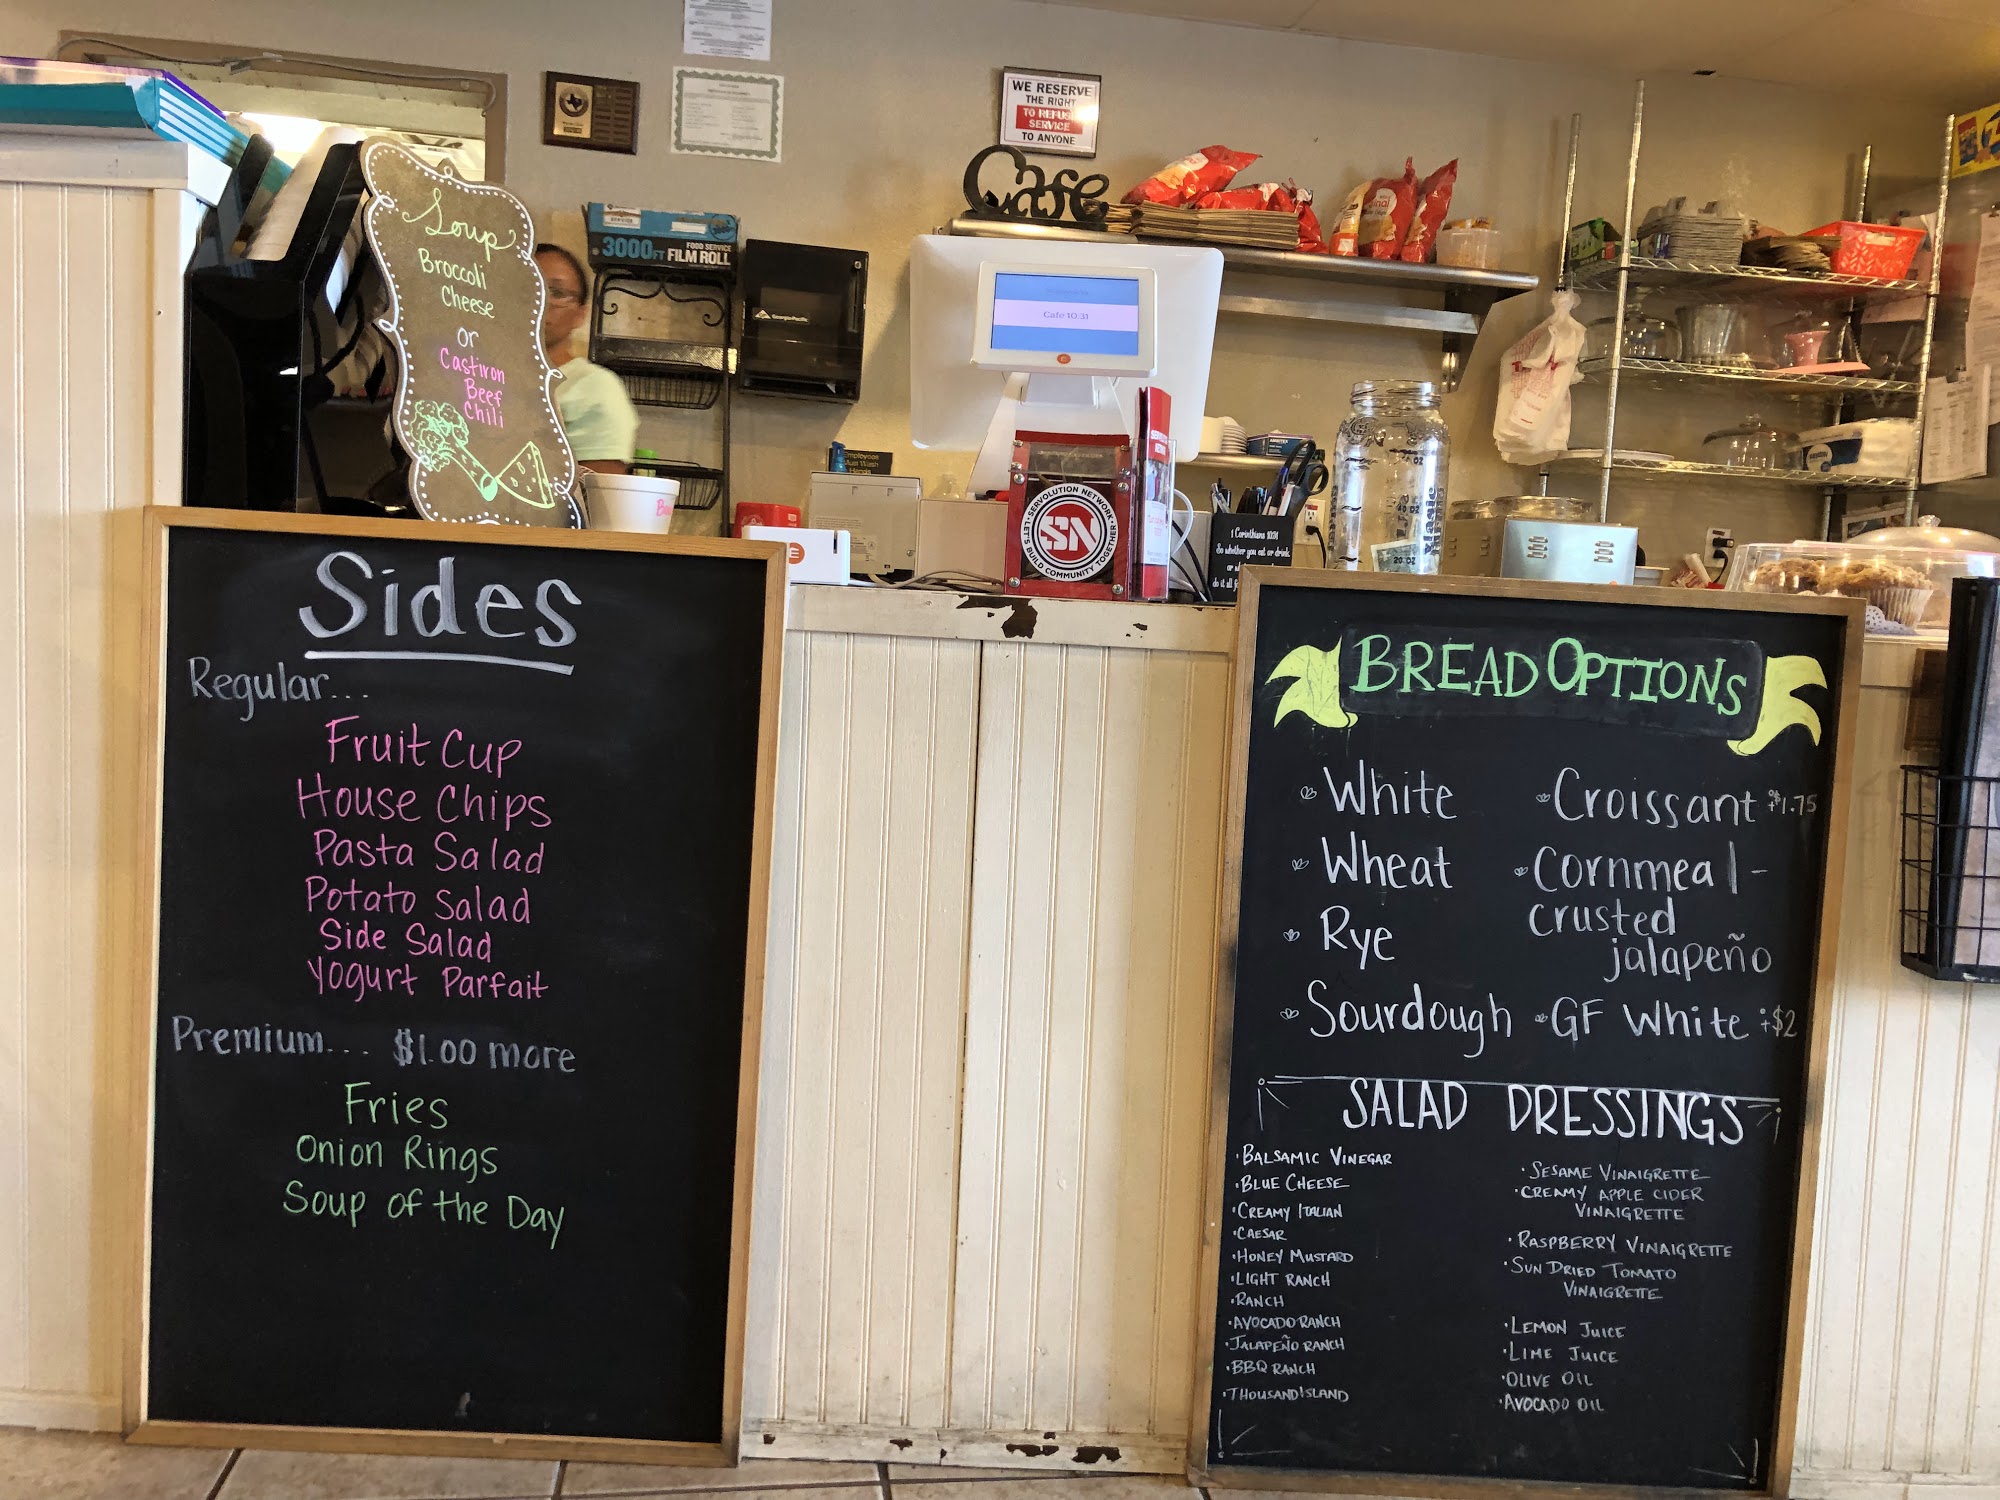 WE RESERVE
THE RIGHT
TO REFUSE
SERVICE
TO ANYONE
Cafe
3000FT
FOOD SERVICE
FILM ROLL
Georgia-Pacific
Cafe 10:31
Soup
Broccoli
Cheese
or
Castiron
Beef
Chili
Employees
Must Wash
Hands
SERVOLUTION NETWORK
SN
LET'S BUILD COMMUNITY TOGETHER
1 Corinthians 10:31
So whether you eat or drink
or
do it all
20 OZ
Sides
Regular...
Fruit Cup
House Chips
Pasta Salad
Potato Salad
Side Salad
Yogurt Parfait
Premium... $1.00 more
Fries
Onion Rings
Soup of the Day
BREAD OPTIONS
White
Wheat
Rye
Sourdough
Croissant +$1.75
Cornmeal-
crusted
jalapeño
GF White +$2
SALAD DRESSINGS
·BALSAMIC VINEGAR
·BLUE CHEESE
·CREAMY ITALIAN
·CAESAR
·HONEY MUSTARD
·LIGHT RANCH
·RANCH
·AVOCADO RANCH
·JALAPEÑO RANCH
·BBQ RANCH
·THOUSAND ISLAND
·SESAME VINAIGRETTE
·CREAMY APPLE CIDER
VINAIGRETTE
·RASPBERRY VINAIGRETTE
·SUN DRIED TOMATO
VINAIGRETTE
·LEMON JUICE
·LIME JUICE
·OLIVE OIL
·AVOCADO OIL